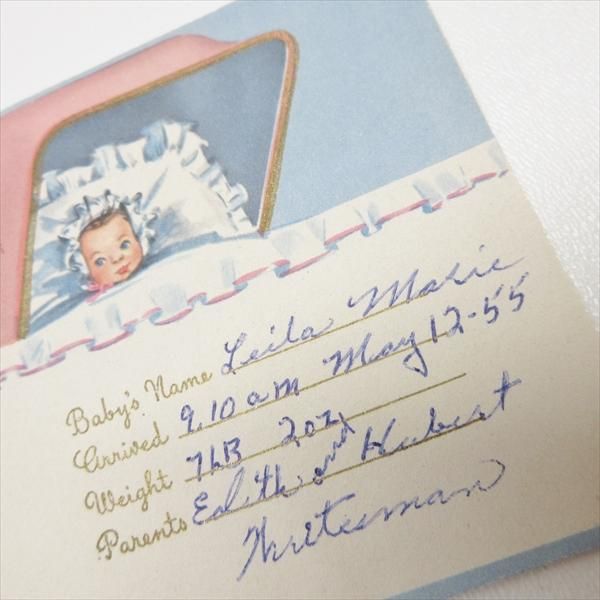 Baby's Name Leila Marie
Arrived 9.10 am May 12-55
Weight 7LB 2oz
Parents Edith and Hubert